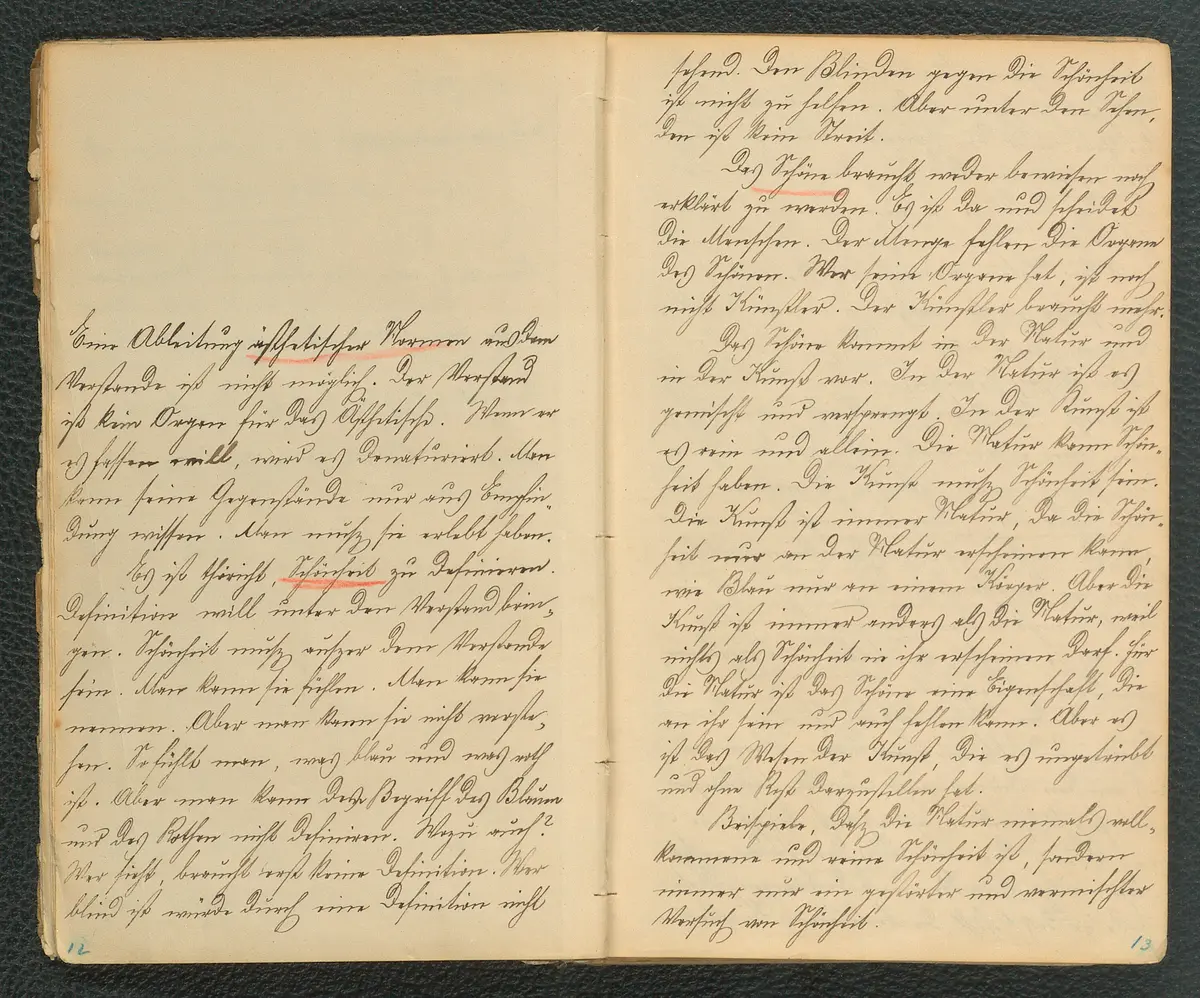 Eine Ableitung ästhetischer Normen aus dem
Verstande ist nicht möglich. Der Verstand
ist kein Organ für das Ästhetische. Wenn er
es fassen will, wird es denaturiert. Man
kann seine Gegenstände nur aus Empfin-
dung wissen. Man musz sie erlebt haben.
Es ist thöricht, Schönheit zu definieren.
Definition will unter den Verstand brin-
gen. Schönheit musz auszer dem Verstande
sein. Man kann sie fühlen. Man kann sie
nennen. Aber man kann sie nicht verste-
hen. So fühlt man, was blau und was roth
ist. Aber man kann den Begriff des Blauen
und des Rothen nicht definiren. Wozu auch?
Wer sieht, braucht erst keine Definition. Wer
blind ist würde durch eine Definition nicht
12
sehend. Den Blinden gegen die Schönheit
ist nicht zu helfen. Aber unter den Sehen-
den ist kein Streit.
Das Schöne braucht weder bewiesen noch
erklärt zu werden. Es ist da und scheidet
die Menschen. Der Menge fehlen die Organe
des Schönen. Wer seine Organe hat, ist noch
nicht Künstler. Der Künstler braucht mehr.
Das Schöne kommt in der Natur und
in der Kunst vor. In der Natur ist es
gemischt und versprengt. In der Kunst ist
es rein und allein. Die Natur kann Schön-
heit haben. Die Kunst musz Schönheit sein.
Die Kunst ist immer Natur, da die Schön-
heit nur an der Natur erscheinen kann,
wie Blau nur an einem Körper. Aber die
Kunst ist immer anders als die Natur, weil
nichts als Schönheit in ihr erscheinen darf. Für
die Natur ist das Schöne eine Eigenschaft, die
an ihr sein und auch fehlen kann. Aber es
ist das Wesen der Kunst, die es ungetrübt
und ohne Rest darzustellen hat.
Beispiele, dasz die Natur niemals voll-
kommene und reine Schönheit ist, sondern
immer nur ein gestörter und vermischter
Versuch von Schönheit.
13